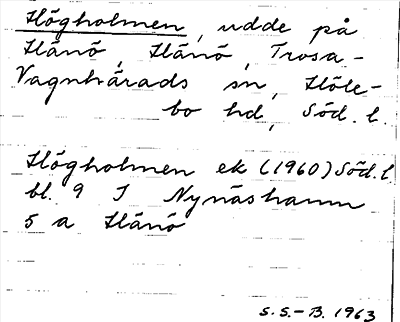 Högholmen, udde på
Hånö, Hånö, Trosa-
Vagnhärads sn, Höle-
bo hd, Söd. l.
Högholmen ek (1960) Söd. l.
bl. 9 J Nynäshamn
5 a Hånö
S.S.-B. 1963